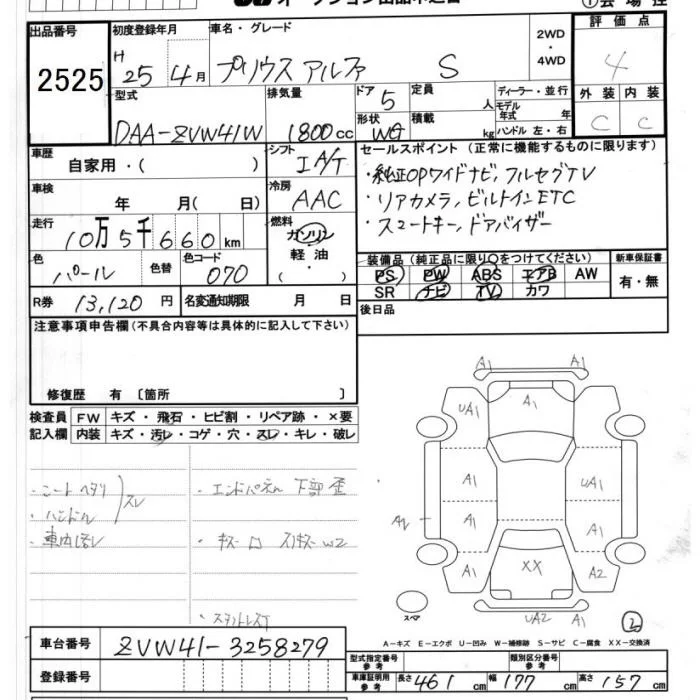 出品番号
2525
初度登録年月
H 25年4月
車名・グレード
プリウス アルファ S
2WD
・
4WD
評価点
4
外装 内装
C C
型式
DAA-ZVW41W
排気量
1800cc
ドア 5
形状 WG
定員 人
積載 kg
ディーラー・並行
モデル年式 年
ハンドル 左・右
車歴
自家用・( )
シフト
IA/T
車検
年 月( 日)
冷房
AAC
走行
10万5千660km
燃料
ガソリン
軽油
・( )
セールスポイント (正常に機能するものに限ります)
・純正OPワイドナビ,フルセグTV
・リアカメラ,ビルトインETC
・スマートキー,ドアバイザー
色
パール
色替
色コード
070
装備品(純正品に限り○をつけてください)
PS PW ABS エアB AW
SR ナビ TV カワ
新車保証書
有・無
R券 13,120円
名変通知期限 月 日
後日品
注意事項申告欄(不具合内容等は具体的に記入して下さい)
修復歴 有 〔箇所 〕
検査員記入欄
FW キズ・飛石・ヒビ割・リペア跡・×要
内装 キズ・汚レ・コゲ・穴・スレ・キレ・破レ
・シートヘタリ
・ハンドル
スレ
・車内汚レ
・エンドパネル 下部歪
・キズ
W2
A1 A1
UA1 A1 A1
A1 UA1
A2 A1 A1
A1 XX A2
UA2 A1
スペア
2
A-キズ E-エクボ U-凹み W-補修跡 S-サビ C-腐食 XX-交換済
車台番号 ZVW41-3258279
登録番号
型式指定番号 参考
類別区分番号 参考
車庫証明用 参考
長さ 461cm 幅 177cm 高さ 157cm